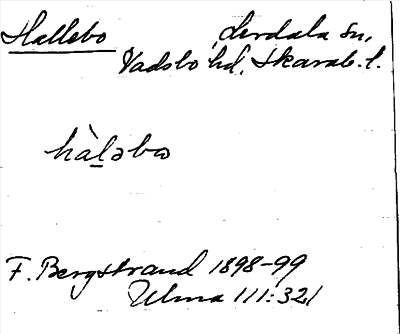 Hallebo Lerdala sn,
Vadsbo hd, Skarab. l.
hàl̲əbω
F. Bergstrand 1898-99
Ulma 111:321